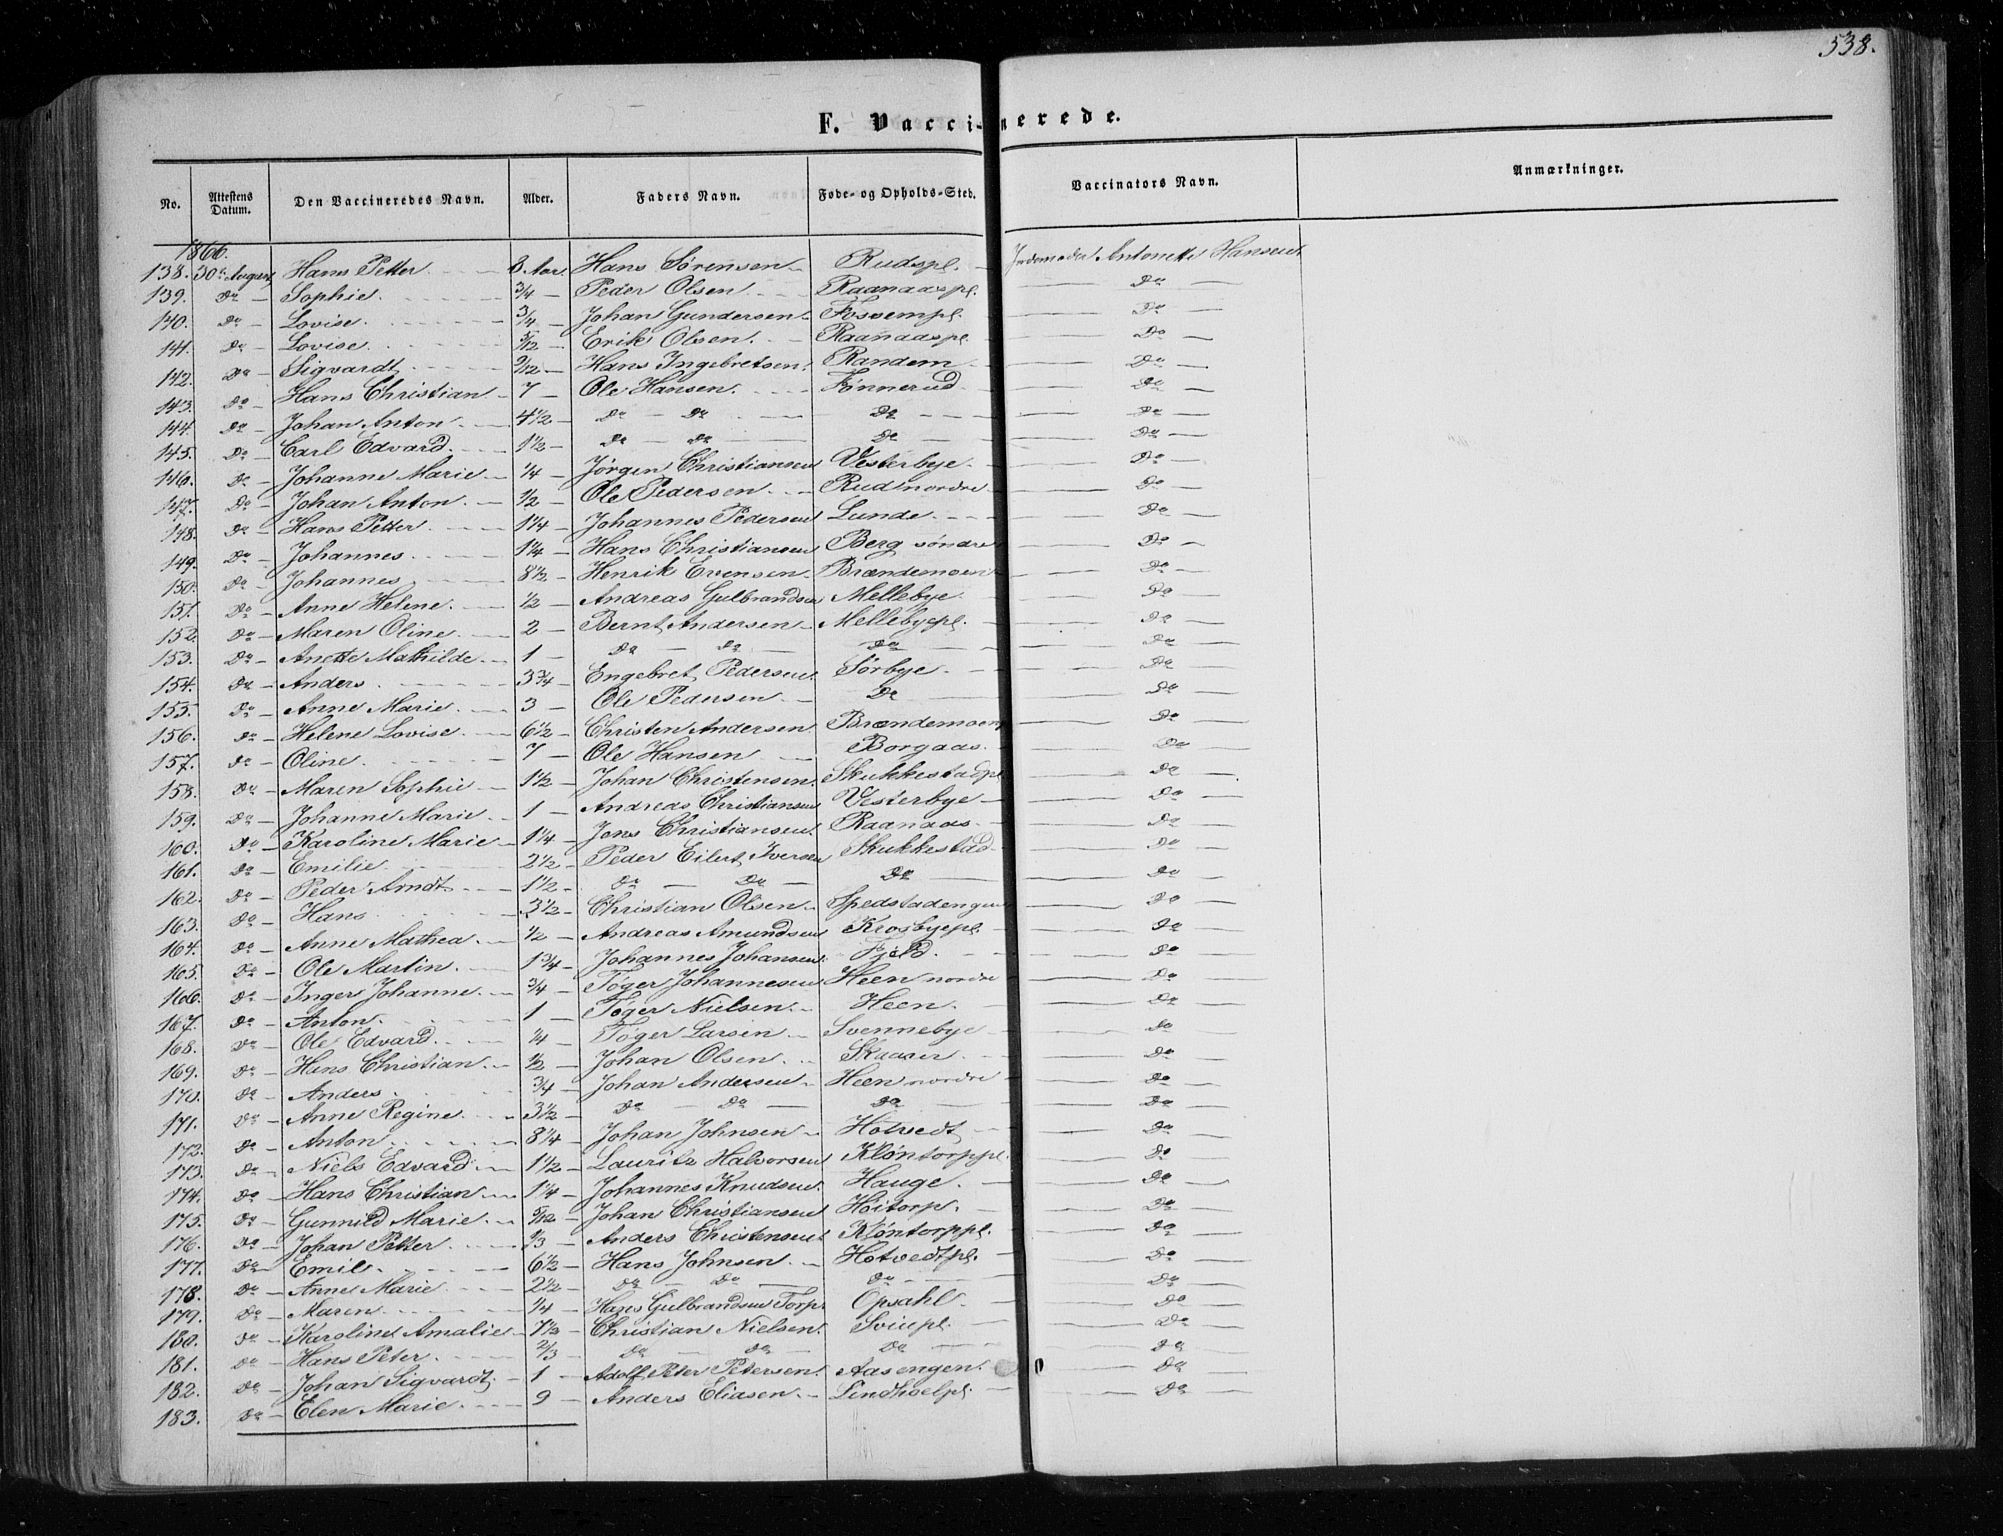 538.
F. Vaccinerede.
No. Attestens Datum. Den Vaccineredes Navn. Alder. Faders Navn. Føde- og Opholds-Sted. Vaccinators Navn. Anmærkninger.
1866.
138. 30te August Hans Petter 8 Aar. Hans Sørensen Rudspl. Jordemoder Antonette Hansen
139. Do Sophie. 3/4 Peder Olsen Raanaaspl. Do
140. Do Lovise. 3/4 Johan Gundersen Fosvempl. Do
141. Do Lovise. 5/12 Erik Olsen. Raanaaspl Do
142. Do Sigvardt 9/12 Hans Ingebretsen. Randem Do
143. Do Hans Christian 7 Ole Hansen. Fønnerud Do
144. Do Johan Anton 4 1/2 Do Do Do Do
145. Do Carl Edvard. 1 1/2 Do Do Do Do
146. Do Johanne Marie 1/4 Jørgen Christiansen Vesterbye. Do
147. Do Johan Anton 1/2 Ole Pedersen Rud nordre Do
148. Do Hans Petter 1 1/4 Johannes Pedersen Lunde. Do
149. Do Johannes. 1 1/4 Hans Christiansen Berg søndre Do
150. Do Johannes 8 1/2 Henrik Evensen Brændemoen Do
151. Do Anne Helene. 1/2 Andreas Gulbrandsen Mellebye. Do
152. Do Maren Oline 2 Bernt Andersen Mellebyepl. Do
153. Do Anette Mathilde 1 Do Do Do Do
154. Do Anders 3 3/4 Engebret Pedersen Sørbye Do
155. Do Anne Marie 3 Ole Pedersen Do Do
156. Do Helene Lovise. 6 1/2 Christen Andersen Brændemoen Do
157. Do Oline 7 Ole Hansen Borgaas. Do
158. Do Maren Sophie 1 1/2 Johan Christensen. Skukkestadpl Do
159. Do Johanne Marie 1 Andreas Christiansen Vesterbye Do
160. Do Karoline Marie 1 1/4 Jens Christiansen. Raanaas. Do
161. Do Emilie 2 1/2 Peder Eilert Iversen Skukkestad Do
162. Do Peder Arndt 1 1/2 Do Do Do Do
163. Do Hans 3 1/2 Christian Olsen Spedstadengen Do
164. Do Anne Mathea 1/2 Andreas Amundsen Krosbyepl Do
165. Do Ole Martin. 1 3/4 Johannes Johansen. Fjeld. Do
166. Do Inger Johanne 3/4 Tøger Johannesen Heen nordre Do
167. Do Anton. 1 Tøger Nielsen Heen. Do
168. Do Ole Edvard. 1/4 Tøger Larsen Svennebye Do
169. Do Hans Christian 1/2 Johan Olsen Skaaser Do
170. Do Anders. 3/4 Johan Andersen Heen nordre Do
171. Do Anne Regine. 3 1/2 Do Do Do Do
172. Do Anton 8 1/4 Johan Johnsen Hotvedt Do
173. Do Niels Edvard 1 1/2 Lauritz Halvorsen Kløntorppl. Do
174. Do Hans Christian 1 1/4 Johannes Knudsen. Hauge. Do
175. Do Gunnild Marie 5/12 Johan Christiansen Hoitorp. Do
176. Do Johan Petter 1/3 Anders Christensen Kløntorppl. Do
177. Do Emil 6 1/2 Hans Johnsen Hotvedtpl. Do
178. Do Anne Marie 2 1/2 Do Do Do Do
179. Do Maren 1/4 Hans Gulbrandsen Torp Opsahl Do
180. Do Karoline Amalie 7 1/2 Christian Nielsen. Sviupl. Do
181. Do Hans Peter. 2/3 Do Do Do Do
182. Do Johan Sigvardt 1 Adolf Peter Petersen. Aasengen. Do
183. Do Elen Marie. 9 Anders Eliasen. Lindhoelpl. Do